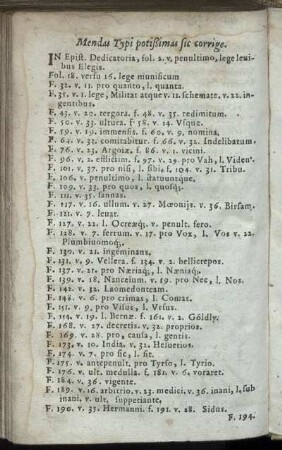 Mendas Typi potissimas sic corrige.
IN Epist. Dedicatoria, fol. 2. v. penultimo, lege levi-
bus Elegis.
Fol. 18. versu 16. lege munificum
F. 32. v. 11. pro quanto, l. quanta.
F. 35. v. 1. lege, Militat atque v. 11. schemate, v. 22. in-
gentibus.
F. 43. v. 20. tergora. f. 48. v. 35. redimitum.
F. 50. v. 33. ultura. f 58. v. 14. Vsque.
F. 59. v. 19. immensis. f. 60. v. 9. nomina.
F. 64. v. 32. comitabitur. f. 66. v. 32. Indelibatum.
F. 76. v. 23. Argoiz. f. 86. v. 1. vicini.
F. 96. v. 2. efflictim. f. 97. v. 29. pro Vah, l. Viden'.
F. 101. v. 37. pro nisi, l. sibi. f. 104. v. 31. Tribu.
F. 106. v. penultimo, l. statuuntque.
F. 109. v. 33. pro quos, l. quosq;.
F. 111. v. 35. sannas.
F. 117. v. 16. ullum. v. 27. Mœonijs. v. 36. Birsam.
F. 121. v. 7. levat.
F. 127. v. 22. l. Ocreæq;. v. penult. fero.
F. 128. v. 7. fertum. v. 17. pro Vox, l. Vos v. 22.
Plumbivomoq;.
F. 130. v. 21. ingeminant.
F. 131. v. 9. Vellera. f. 134. v. 2. bellicrepos.
F. 137. v. 21. pro Næriaq;, l. Næniaq;.
F. 139. v. 18. Nanceium. v. 19. pro Nec, l. Nos.
F. 142. v. 32. Laomedonteam.
F. 148. v. 6. pro crimas, l. Comas.
F. 151. v. 9. pro Visus, l. Vesus.
F. 154. v. 19. l. Bernæ. f. 161. v. 2. Göldly.
F. 168. v. 27. decretis. v. 32. proprios.
F. 169. v. 28. pro, causa, l. gentis.
F. 173. v. 10. India. v. 32. Hesuerios.
F. 174. v. 7. pro sic, l. sit.
F. 175. v. antepenult. pro Tyrso, l. Tyrio.
F. 176. v. ult. medulla. f. 181. v. 6. voraret.
F. 184. v. 36. vigente.
F. 189. v. 16. arbitrio. v. 23. medici. v. 36. inani, l. sub
inani, v. ult. supperiante.
F. 190. v. 35. Hermanni. f. 191. v. 28. Sidus.
F. 194.